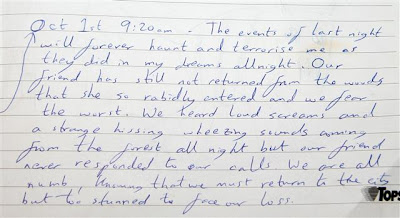 Oct 1st 9:20am - The events of last night
will forever haunt and terrorise me as
they did in my dreams allnight. Our
friend has still not returned from the woods
that she so rabidly entered and we fear
the worst. We heard loud screams and
a strange hissing wheezing sounds coming
from the forest all night but our friend
never responded to our calls. We are all
numb, knowing that we must return to the city
but to stunned to face our loss.
TOPS